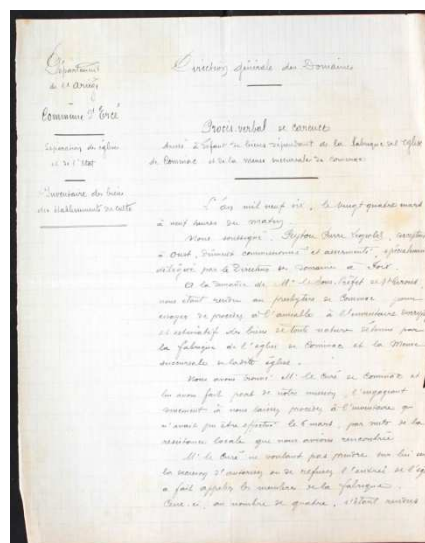 Département
de l'Ariège
Commune d'Ercé
Séparation des églises
et de l'Etat
Inventaire des biens
des établissements de culte
Direction générale des Domaines
Procès-verbal de carence
dressé à défaut de biens dépendant de la fabrique de l'église
de Cominac et de la mense succursale de Cominac
L'an mil neuf cent six, le vingt quatre mars
à neuf heures du matin,
Nous soussigné, Peytou Pierre Léopold,
à Oust, dûment commissionné et assermenté, spécialement
délégué par le Directeur des Domaines à Foix,
A la requête de M. le Sous-Préfet de St Girons,
nous étant rendu au presbytère de Cominac pour
essayer de procéder à l'amiable à l'inventaire
et estimatif des biens de toute nature détenus par
la fabrique de l'église de Cominac et la Mense
succursale de ladite église.
Nous avons trouvé M. le Curé de Cominac et
lui avons fait part de notre mission, l'engageant
à nous laisser procéder à l'inventaire qui
n'avait pu être effectué le 6 mars, par suite de la
résistance locale que nous avions rencontrée
M. le Curé ne voulant pas prendre sur lui
d'autoriser ou de refuser l'entrée de
a fait appeler les membres de la fabrique.
Ceux-ci, au nombre de quatre, s'étant rendus